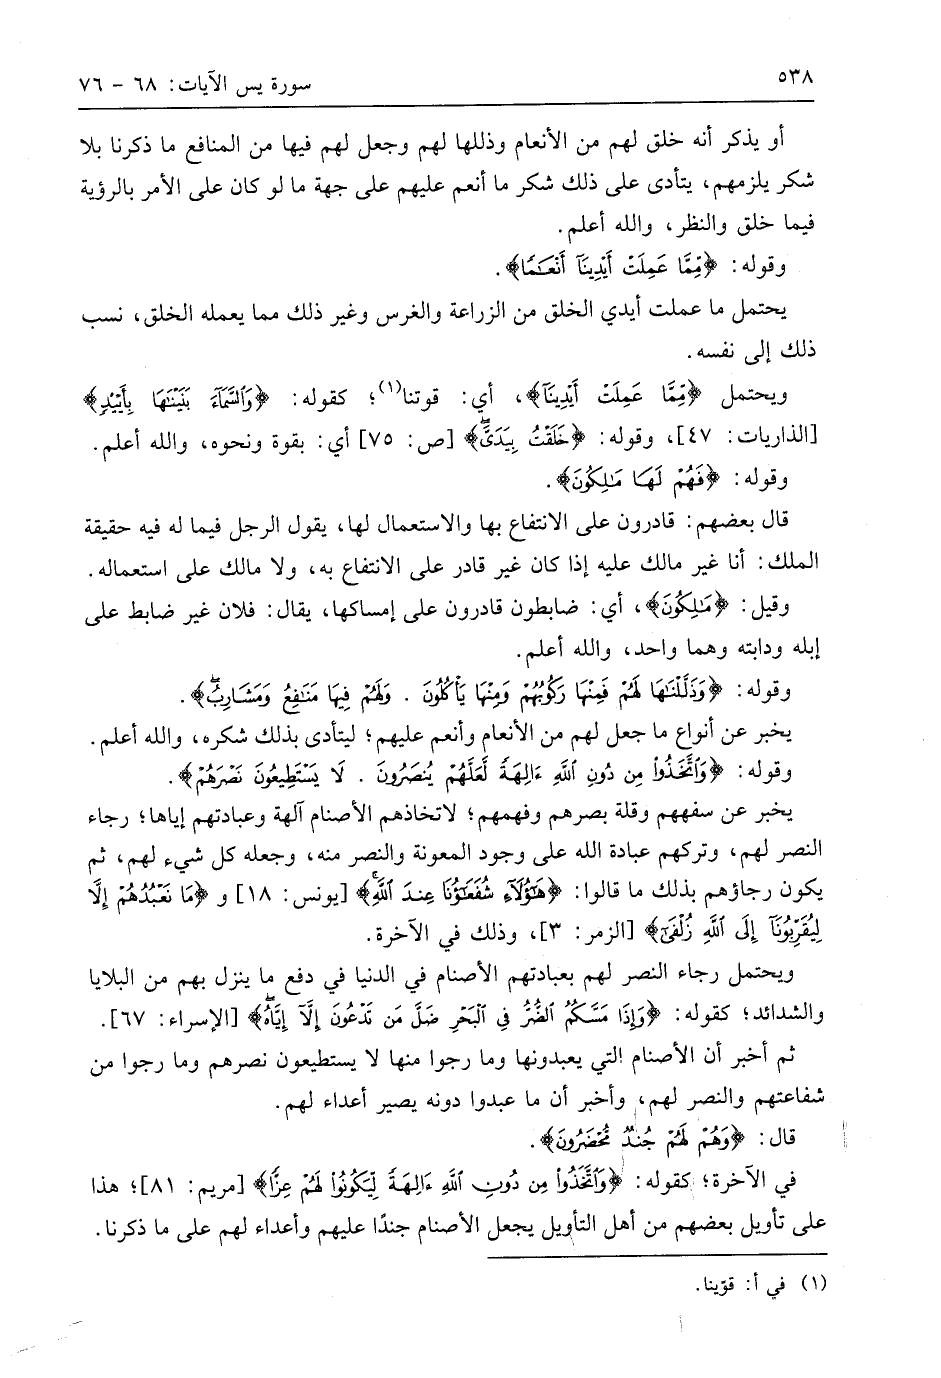 ٥٣٨
سورة يس الآيات: ٦٨ - ٧٦
أو يذكر أنه خلق لهم من الأنعام وذللها لهم وجعل لهم فيها من المنافع ما ذكرنا بلا
شكر يلزمهم، يتأدى على ذلك شكر ما أنعم عليهم على جهة ما لو كان على الأمر بالرؤية
فيما خلق والنظر، والله أعلم.
وقوله: ﴿مِّمَّا عَمِلَتْ أَيْدِينَآ أَنْعَٰمًا﴾.
يحتمل ما عملت أيدي الخلق من الزراعة والغرس وغير ذلك مما يعمله الخلق، نسب
ذلك إلى نفسه.
ويحتمل ﴿مِّمَّا عَمِلَتْ أَيْدِينَآ﴾، أي: قوتنا(١)؛ كقوله: ﴿وَٱلسَّمَآءَ بَنَيْنَٰهَا بِأَيْيْدٍ﴾
[الذاريات: ٤٧]، وقوله: ﴿خَلَقْتُ بِيَدَيَّۖ﴾ [ص: ٧٥] أي: بقوة ونحوه، والله أعلم.
وقوله: ﴿فَهُمْ لَهَا مَٰلِكُونَ﴾.
قال بعضهم: قادرون على الانتفاع بها والاستعمال لها، يقول الرجل فيما له فيه حقيقة
الملك: أنا غير مالك عليه إذا كان غير قادر على الانتفاع به، ولا مالك على استعماله.
وقيل: ﴿مَٰلِكُونَ﴾، أي: ضابطون قادرون على إمساكها، يقال: فلان غير ضابط على
إبله ودابته وهما واحد، والله أعلم.
وقوله: ﴿وَذَلَّلْنَٰهَا لَهُمْ فَمِنْهَا رَكُوبُهُمْ وَمِنْهَا يَأْكُلُونَ . وَلَهُمْ فِيهَا مَنَٰفِعُ وَمَشَارِبُۖ﴾.
يخبر عن أنواع ما جعل لهم من الأنعام وأنعم عليهم؛ ليتأدى بذلك شكره، والله أعلم.
وقوله: ﴿وَٱتَّخَذُوا۟ مِن دُونِ ٱللَّهِ ءَالِهَةً لَّعَلَّهُمْ يُنصَرُونَ . لَا يَسْتَطِيعُونَ نَصْرَهُمْ﴾.
يخبر عن سفههم وقلة بصرهم وفهمهم؛ لاتخاذهم الأصنام آلهة وعبادتهم إياها؛ رجاء
النصر لهم، وتركهم عبادة الله على وجود المعونة والنصر منه، وجعله كل شيء لهم، ثم
يكون رجاؤهم بذلك ما قالوا: ﴿هَٰٓؤُلَآءِ شُفَعَٰٓؤُنَا عِندَ ٱللَّهِۚ﴾ [يونس: ١٨] و ﴿مَا نَعْبُدُهُمْ إِلَّا
لِيُقَرِّبُونَآ إِلَى ٱللَّهِ زُلْفَىٰٓ﴾ [الزمر: ٣]، وذلك في الآخرة.
ويحتمل رجاء النصر لهم بعبادتهم الأصنام في الدنيا في دفع ما ينزل بهم من البلايا
والشدائد؛ كقوله: ﴿وَإِذَا مَسَّكُمُ ٱلضُّرُّ فِي ٱلْبَحْرِ ضَلَّ مَن تَدْعُونَ إِلَّآ إِيَّاهُۖ﴾ [الإسراء: ٦٧].
ثم أخبر أن الأصنام التي يعبدونها وما رجوا منها لا يستطيعون نصرهم وما رجوا من
شفاعتهم والنصر لهم، وأخبر أن ما عبدوا دونه يصير أعداء لهم.
قال: ﴿وَهُمْ لَهُمْ جُندٌ مُّحْضَرُونَ﴾.
في الآخرة؛ كقوله: ﴿وَٱتَّخَذُوا۟ مِن دُونِ ٱللَّهِ ءَالِهَةً لِّيَكُونُوا۟ لَهُمْ عِزًّا﴾ [مريم: ٨١]؛ هذا
على تأويل بعضهم من أهل التأويل يجعل الأصنام جندًا عليهم وأعداء لهم على ما ذكرنا.
(١) في أ: قوّينا.